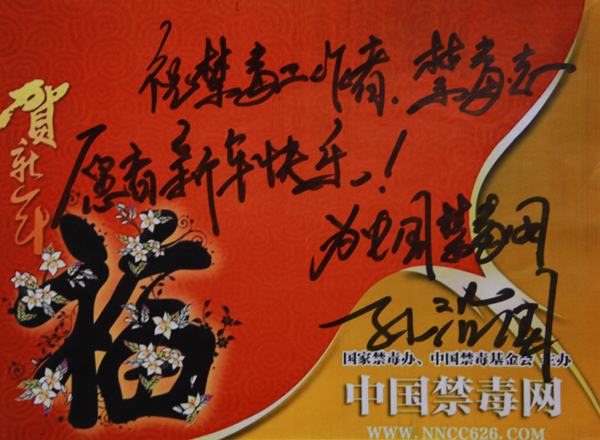 祝禁毒工作者、禁毒志
愿者新年快乐!
为中国禁毒网
贺新年
福
国家禁毒办、中国禁毒基金会 主办
中国禁毒网
WWW.NNCC626.COM